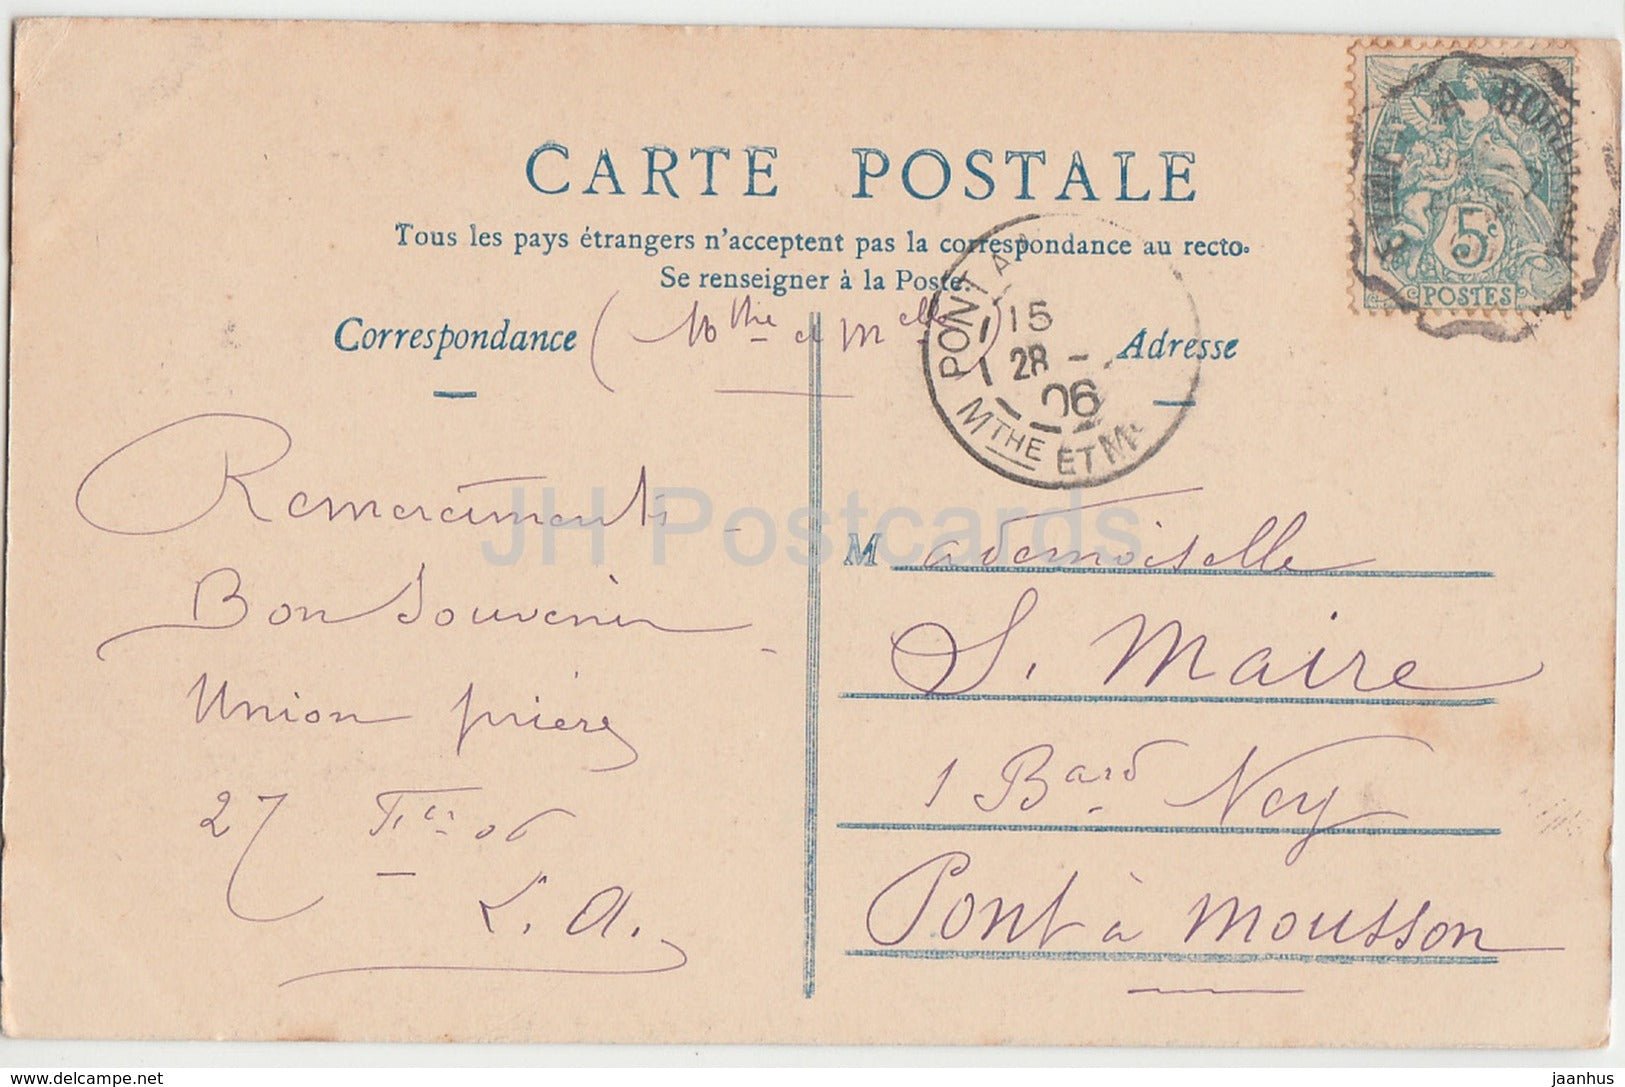 CARTE POSTALE
Tous les pays étrangers n'acceptent pas la correspondance au recto.
Se renseigner à la Poste.
Correspondance
(Mthe et Mlle)
Adresse
Remerciments
Bon Souvenir
Union prières
27
06
L. A.
Mademoiselle
S. Maire
1 Bard Ney
Pont à Mousson
PONT A
15
28
06
MTHE ET M
A BORD
5c
POSTES
JH Postcards
www.delcampe.net
jaanhus